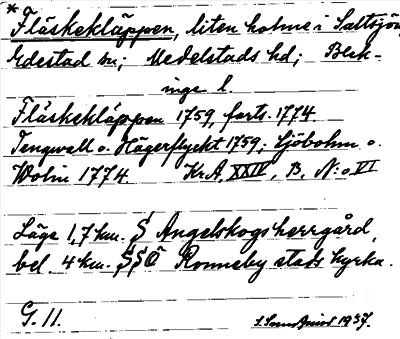 * Fläskekläppen, liten holme i Saltsjön,
Edestad sn; Medelstads hd; Blek-
inge l.
Fläskekläppen 1759, forts. 1774.
Tengwall o. Hägerflyckt 1759; Sjöbohm o.
Wolin 1774. Kr.A, XXIV, B, N:o VI
Läge 1,7 km. S Angelskogs herrgård,
bel. 4 km. SSO Ronneby stads kyrka.
G. 11. 1937.